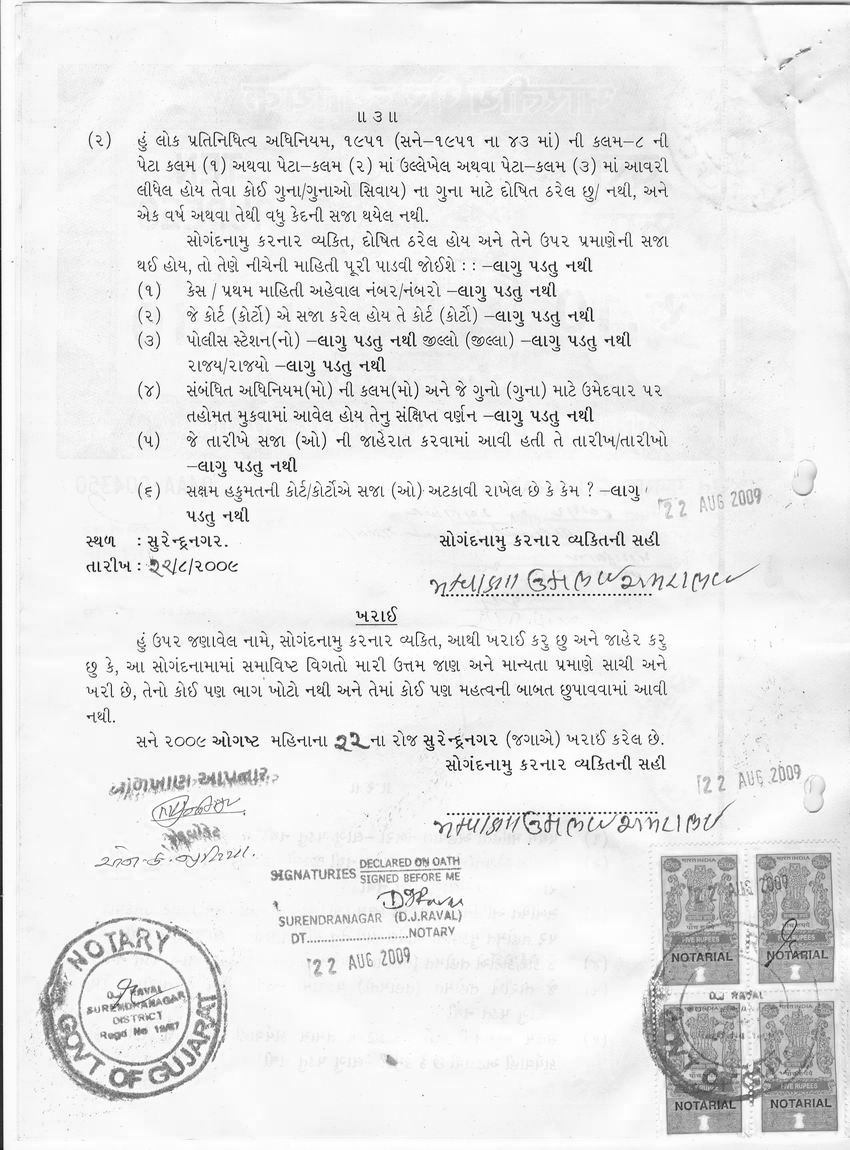 ॥ ૩ ॥
(૨) હું લોક પ્રતિનિધિત્વ અધિનિયમ, ૧૯૫૧ (સને–૧૯૫૧ ના ૪૩ માં) ની કલમ–૮ ની
પેટા કલમ (૧) અથવા પેટા–કલમ (૨) માં ઉલ્લેખેલ અથવા પેટા–કલમ (૩) માં આવરી
લીધેલ હોય તેવા કોઈ ગુના/ગુનાઓ સિવાય) ના ગુના માટે દોષિત ઠરેલ છુ/ નથી, અને
એક વર્ષ અથવા તેથી વધુ કેદની સજા થયેલ નથી.
સોગંદનામુ કરનાર વ્યકિત, દોષિત ઠરેલ હોય અને તેને ઉપર પ્રમાણેની સજા
થઈ હોય, તો તેણે નીચેની માહિતી પૂરી પાડવી જોઈશે : : –લાગુ પડતુ નથી
(૧) કેસ / પ્રથમ માહિતી અહેવાલ નંબર/નંબરો –લાગુ પડતુ નથી
(૨) જે કોર્ટ (કોર્ટો) એ સજા કરેલ હોય તે કોર્ટ (કોર્ટો) –લાગુ પડતુ નથી
(૩) પોલીસ સ્ટેશન(નો) –લાગુ પડતુ નથી જીલ્લો (જીલ્લા) –લાગુ પડતુ નથી
રાજય/રાજયો –લાગુ પડતુ નથી
(૪) સંબંધિત અધિનિયમ(મો) ની કલમ(મો) અને જે ગુનો (ગુના) માટે ઉમેદવાર પર
તહોમત મુકવામાં આવેલ હોય તેનુ સંક્ષિપ્ત વર્ણન –લાગુ પડતુ નથી
(૫) જે તારીખે સજા (ઓ) ની જાહેરાત કરવામાં આવી હતી તે તારીખ/તારીખો
–લાગુ પડતુ નથી
(૬) સક્ષમ હકુમતની કોર્ટ/કોર્ટોએ સજા (ઓ) અટકાવી રાખેલ છે કે કેમ ? –લાગુ
પડતુ નથી
22 AUG 2009
સ્થળ : સુરેન્દ્રનગર. સોગંદનામુ કરનાર વ્યકિતની સહી
તારીખ : ૨૨/૮/૨૦૦૯
ખરાઈ
હું ઉપર જણાવેલ નામે, સોગંદનામુ કરનાર વ્યકિત, આથી ખરાઈ કરુ છુ અને જાહેર કરુ
છુ કે, આ સોગંદનામામાં સમાવિષ્ટ વિગતો મારી ઉત્તમ જાણ અને માન્યતા પ્રમાણે સાચી અને
ખરી છે, તેનો કોઈ પણ ભાગ ખોટો નથી અને તેમાં કોઈ પણ મહત્વની બાબત છુપાવવામાં આવી
નથી.
સને ૨૦૦૯ ઓગષ્ટ મહિનાના ૨૨ ના રોજ સુરેન્દ્રનગર (જગાએ) ખરાઈ કરેલ છે.
સોગંદનામુ કરનાર વ્યકિતની સહી
22 AUG 2009
SIGNATURIES DECLARED ON OATH
SIGNED BEFORE ME
SURENDRANAGAR (D.J.RAVAL)
DT..........................NOTARY
22 AUG 2009
NOTARY
D.J. RAVAL
SURENDRANAGAR
DISTRICT
Regd No 12/87
GOVT OF GUJARAT
22 AUG 2009
भारत INDIA
पाँच रुपये
FIVE RUPEES
NOTARIAL
FIVE RUPEES
NOTARIAL
D.J. RAVAL
FIVE RUPEES
NOTARIAL
FIVE RUPEES
NOTARIAL